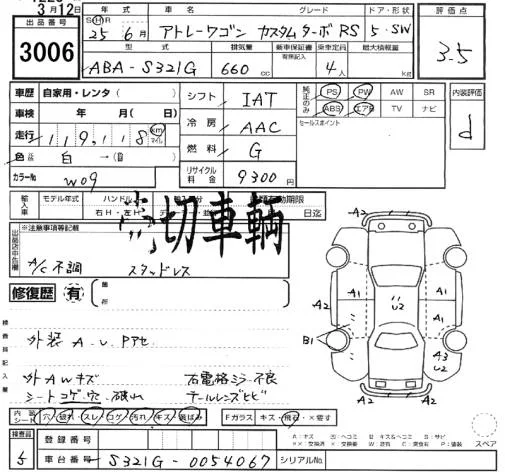 3月12日
出品番号
3006
年式 車名 グレード ドア・形状 評価点
S H R 25年6月 アトレーワゴン カスタムターボRS 5・SW 3.5
型式 排気量 新車保証書 乗車定員 最大積載量
有無記入
ABA-S321G 660 cc 4人 kg
車歴 自家用・レンタ( )
車検 年 月( 日)
走行 119,118 km マイル
色 白 →( )
カラーNo W09
シフト IAT
冷房 AAC
燃料 G
リサイクル料金 9300円
純正のみ PS PW AW SR
ABS エアB TV ナビ
セールスポイント
内装評価
d
輸入車 モデル年式 ハンドル
右H・左H
有効期限
日迄
切車輌
出品店申告欄
※注意事項等記載
A/C不調 スタッドレス
修復歴 有
箇所
検査員記入欄
外装 A.U. Pアセ
外AWキズ 右電格ミラー不良
シートコゲ・穴・破れ テールレンズヒビ
内装シート 穴 破れ スレ コゲ 汚れ キズ 跡ばみ
Fガラス キズ・飛石・×要す
検査員 5
登録番号
車台番号 S321G-0054067 シリアルNo.
A2
A2 A1 A1 A2
U2
B1 A3
U2
A2 A2
スペア
A:キズ U:ヘコミ B:キズ&ヘコミ S:サビ
××:交換済 ×:交換要 W:波有 C:腐食有 P:塗装